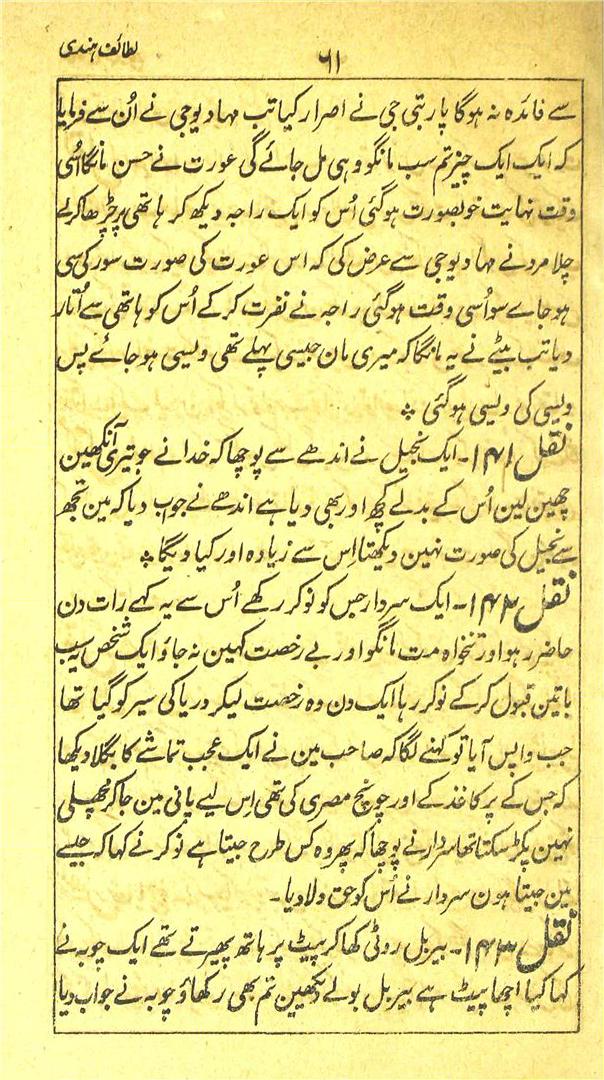 لطائف ہندی
۶۱
سے فائدہ نہ ہوگا پاربتی جی نے اصرار کیا تب مہادیوجی نے اُن سے فرمایا
کہ ایک ایک چیز تم سب مانگو وہی مل جائے گی عورت نے حسن مانگا اُسی
وقت نہایت خوبصورت ہوگئی اُس کو ایک راجہ دیکھ کر ہاتھی پر چڑھا کر لے
چلا مرد نے مہادیوجی سے عرض کی کہ اس عورت کی صورت سور کی سی
ہو جاے سو اُسی وقت ہوگئی راجہ نے نفرت کر کے اُس کو ہاتھی سے اُتار
دیا تب بیٹے نے یہ مانگا کہ میری مان جیسی پہلے تھی ویسی ہو جائے پس
ویسی کی ویسی ہوگئی ٭
نقل ۱۴۱۔ ایک بخیل نے اندھے سے پوچھا کہ خدا نے جو تیری آنکھین
چھین لین اُس کے بدلے کچھ اور بھی دیا ہے اندھے نے جواب دیا کہ مین تجھ
سے بخیل کی صورت نہین دیکھتا اِس سے زیادہ اور کیا دیگا ٭
نقل ۱۴۲۔ ایک سردار جس کو نوکر رکھے اُس سے یہ کہے رات دن
حاضر رہو اور تنخواہ مت مانگو اور بے رخصت کہین نہ جاؤ ایک شخص یہ سب
باتین قبول کر کے نوکر رہا ایک دن وہ رخصت لیکر دریا کی سیر کو گیا تھا
جب واپس آیا تو کہنے لگا کہ صاحب مین نے ایک عجب تماشے کا بگلا دیکھا
کہ جس کے پر کاغذ کے اور چونچ مصری کی تھی اِس لیے پانی مین جا کر مچھلی
نہین پکڑ سکتا تھا سردار نے پوچھا کہ پھر وہ کس طرح جیتا ہے نوکر نے کہا کہ جیسے
مین جیتا ہون سردار نے اُس کو حق دلا دیا۔
نقل ۱۴۳۔ بیربل روٹی کھا کر پیٹ پر ہاتھ پھیرتے تھے ایک چوبہ نے
کہا کیا اچھا پیٹ ہے بیربل بولے دیکھین تم بھی رکھاؤ چوبہ نے جواب دیا